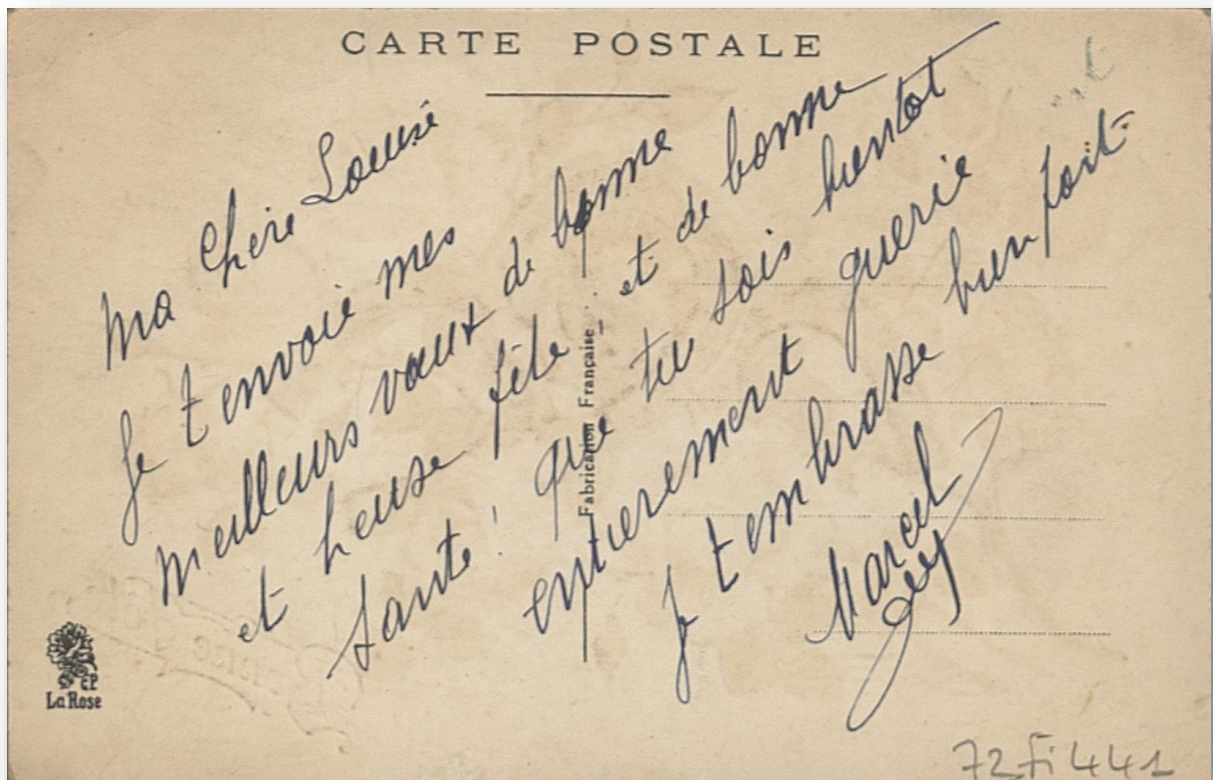 CARTE POSTALE
Ma chère Louise
Je t envoie mes
meilleurs vœux de bonne
et heuse fête et de bonne
santé ! que tu sois bientot
entierement guerie
Je t embrasse bien fort
Marcel
Fabrication Française
CP
La Rose
72 Fi 441